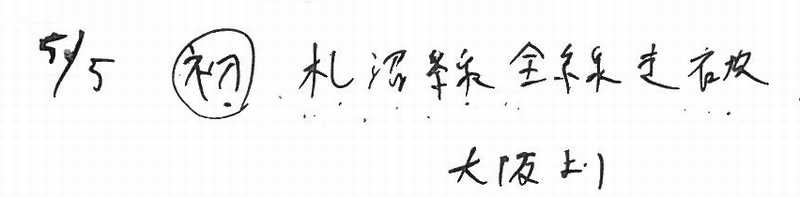 5/5 ㊗初 札沼線全線走破
大阪より